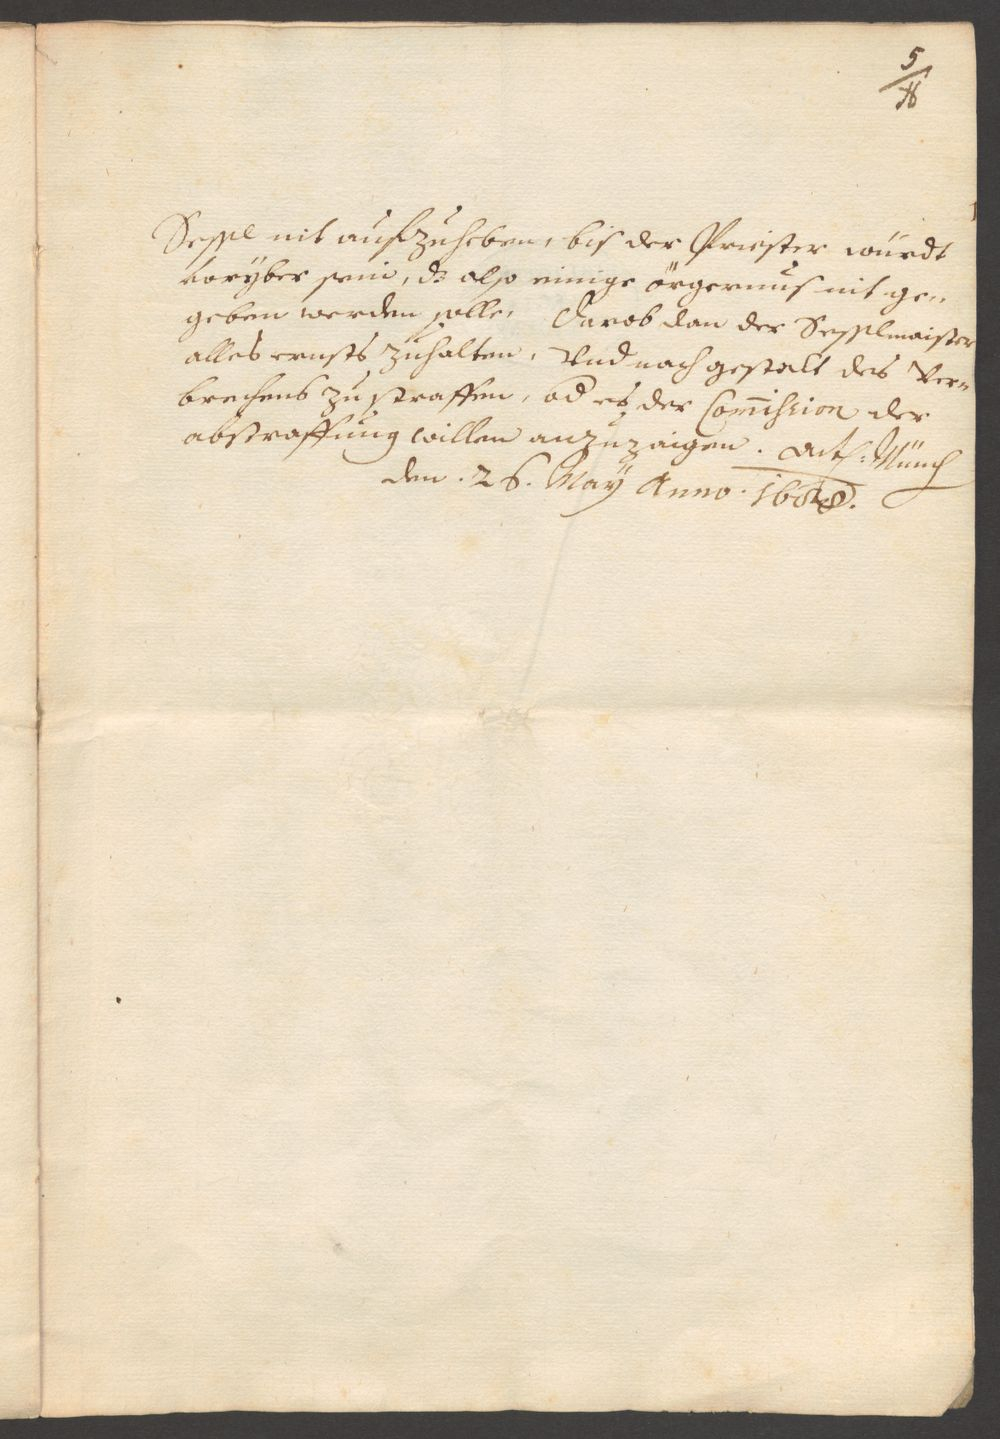 5
Sessl nit aufzuheben, bis der Priester würdt
voryber sein, dz also einige örgernus nit ge-
geben werden solle, Darob dan der Sesslmaister
alles ernsts zuhalten, Vnd nach gestalt des Ver-
brechens zu straffen, od es der Comission der
abstraffung willen anzuzaigen. Act: Münch
den. 26. May Anno. 1688.